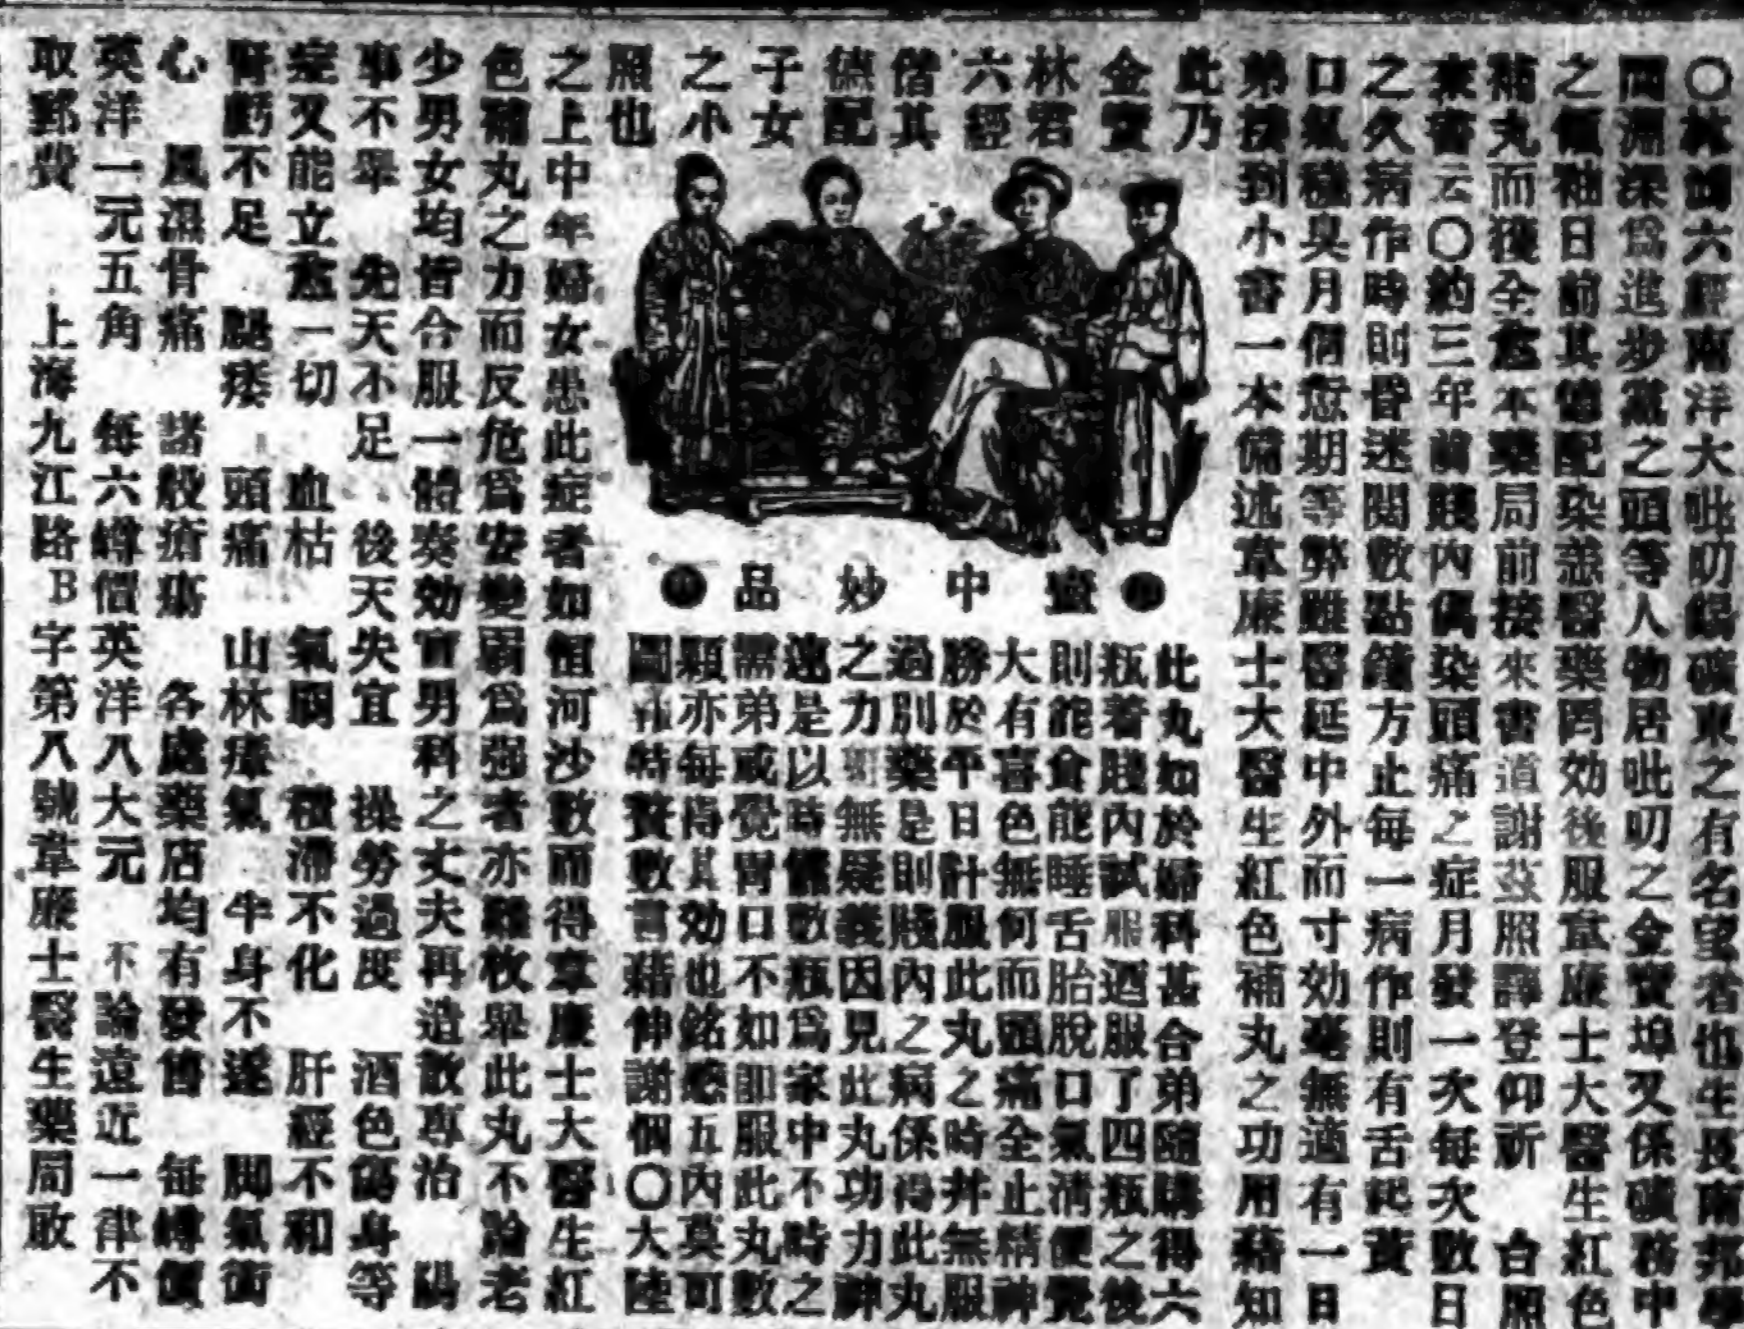 〇林君六經南洋大吡叻錫礦東之有名望者也生長南邦學
問淵深爲進步黨之頭等人物居吡叻之金寶埠又係礦務中
之領袖日前其德配染恙醫藥罔効後服韋廉士大醫生紅色
補丸而獲全愈本藥局前接來書道謝茲照譯登仰祈 台照
來書云〇約三年前賤內偶染頭痛之症月發一次每次數日
之久病作時則昏迷閱數點鐘方止每一病作則有舌起黃
口氣穢臭月信愆期等弊雖醫延中外而寸効毫無適有一日
弟接到小書一本備述韋廉士大醫生紅色補丸之功用藉知
此乃
金寶
林君
六經
偕其
德配
子女
之小
照也
蜜中妙品
此丸如於婦科甚合弟隨購得六
瓶着賤內試服迺服了四瓶之後
則能食能睡舌胎脫口氣淸便覺
大有喜色無何而頭痛全止精神
勝於平日計服此丸之時幷無服
過別藥是則賤內之病係得此丸
之力 無疑義因見此丸功力神
速是以時備數瓶爲家中不時之
需弟或覺胃口不如卽服此丸數
顆亦每得其効也銘感五內莫可
圖報特贅數言藉伸謝個〇大陸
之上中年婦女患此症者如恒河沙數而得韋廉士大醫生紅
色補丸之力而反危爲安變弱爲强者亦難枚舉此丸不論老
少男女均皆合服一體奏効實男科之丈夫再造散專治 陽
事不舉 先天不足 後天失宜 操勞過度 酒色傷身等
症又能立愈一切 血枯 氣 積滯不化 肝經不和
腎虧不足 腿痿 頭痛 山林瘴氣 半身不遂 脚氣衝
心 風濕骨痛 諸般瘡瘍 各處藥店均有發售 每罇價
英洋一元五角 每六罇價英洋八大元 不論遠近一律不
取郵費 上海九江路B字第八號韋廉士醫生藥局啟